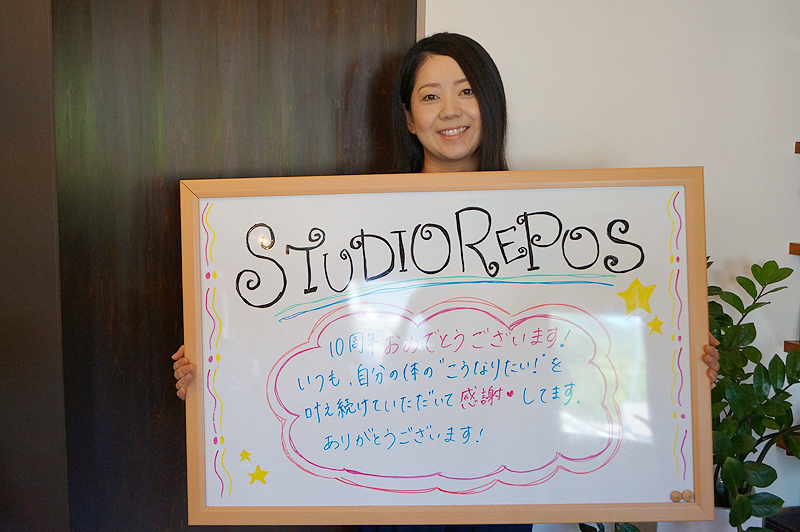 STUDIO REPOS
10周年おめでとうございます!
いつも、自分の体の"こうなりたい!"を
叶え続けていただいて感謝♥してます。
ありがとうございます!